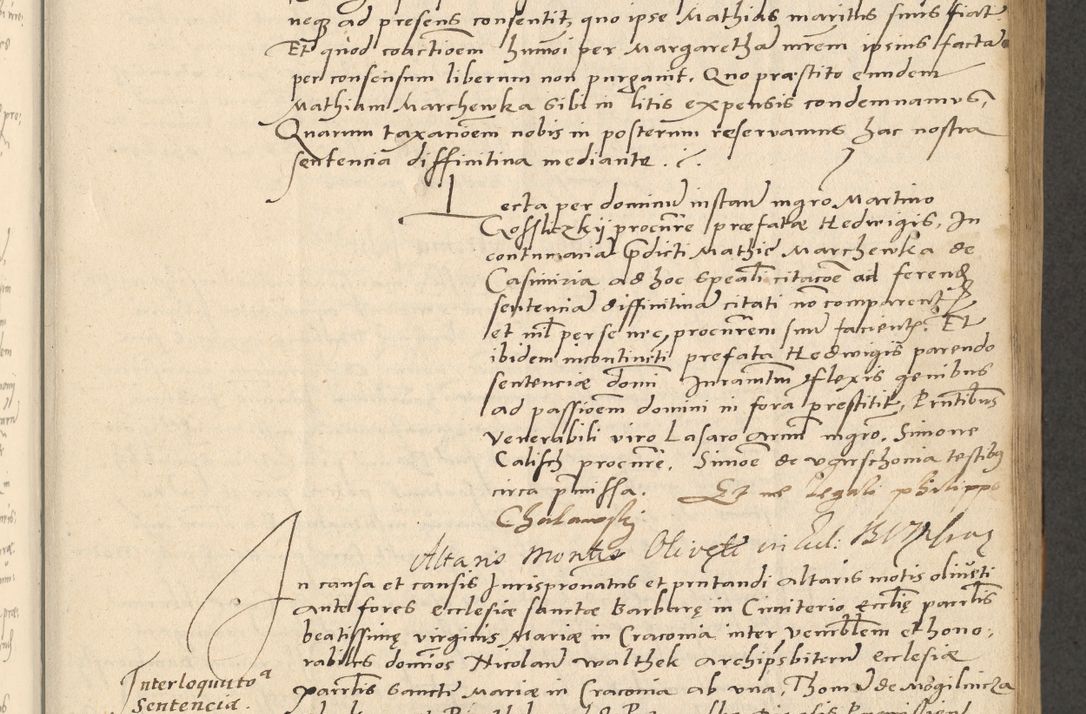 neq₃ ad presens consentit, quo ipse Mathias maritus suus fiat.
Et quod coactioem humoi per Margaretha mrem ipsius facta
per consensum liberum non purgauit. Quo præstito eundem
Mathiam Marchewka sibi in litis expensis condemnamus,
Quarum taxacioem nobis in posterum reseruamus hac nostra
sentencia diffinitiua mediante.
Lecta per dominu instan mgro Martino
Gossliczkij procure præfatæ Hedwigis, In
contumacia prædicti Mathie Marchewka de
Casimiria ad hoc speali citacoe ad ferend
sentencia diffinitiua citati no comparent
et nil per se nec procurem suu facient. Et
ibidem incontineti prefata Hedwigis parendo
sentenciæ domi Iuramtum flexis genibus
ad passioem domini in fora prestitit, Prntibus
venerabili viro Lasaro mgro, Simone
Calisch procure, Simoe de vgarschonia testibus
circa pmissa. Et me legali philippo
Chalawsky
Altaris Montis Oliveti in Ecl. B V M
In causa et causis Iurispronatus et prntandi altaris motis oliueti
ante fores ecclesiæ sanctæ Barbarę in Cimiterio ecclię parrlis
beatissimę virginis Mariæ in Craconia inter venrblem et hono,
rabiles domos Nicolaum walthek archipsbiterum ecclesiæ
parrlis sanctæ Mariæ in Craconia ab vna, Thoma de Mogilnicza
Interloquutoᵃ
Sentencia.